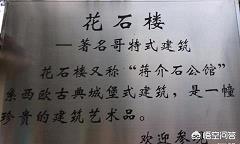 花石楼
—著名哥特式建筑
花石楼又称“蒋介石公馆”
系西欧古典城堡式建筑，是一幢
珍贵的建筑艺术品。
欢迎参观
悟空问答